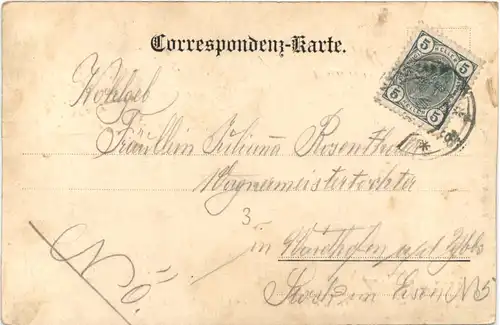 Correspondenz-Karte.
5 5
HELLER
5 5
Wohlgeb
Fräullein Juliuna Rosenthaler
Wagnermeistertochter
3
in Waidhofen a/d Ybbs
N.Ö.